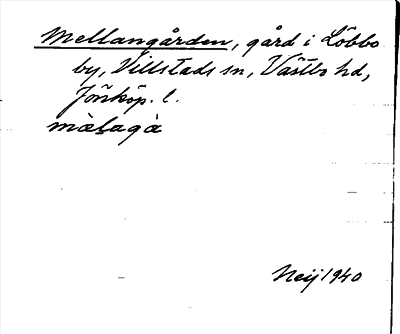 Mellangården, gård i Löbbo
by, Villstads sn, Västbo hd,
Jönköp. l.
màlagà
Neij 1940